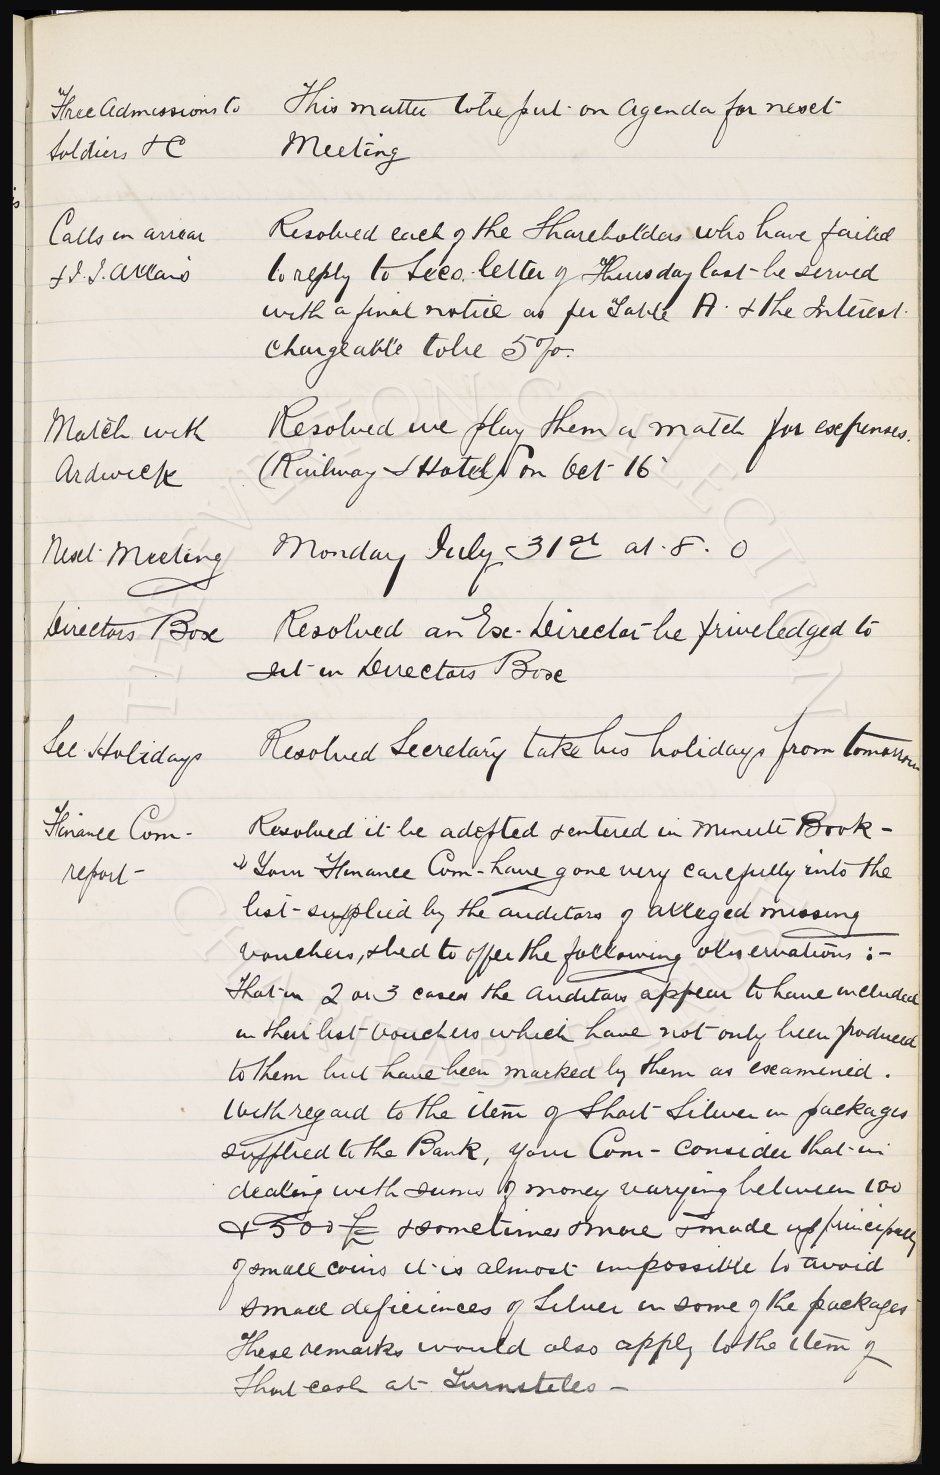 Free Admissions to
Soldiers & C
This matter to be put on Agenda for next
Meeting
Calls in arrear
Resolved each of the Shareholders who have failed
to reply to Secs. letter of Thursday last be served
with a final notice as per Table A. & the Interest
chargeable to be 5%.
Match with
Ardwick
Resolved we play them a match for expenses.
(Railway & Hotel) on Oct 16
Next Meeting
Monday July 31st at 8. 0
Directors Box
Resolved an Ex-Director be priveledged to
sit in Directors Box
Sec Holidays
Resolved Secretary take his holidays from tomorrow
Finance Com-
report-
Resolved it be adopted & entered in Minute Book -
" Your Finance Com- have gone very carefully into the
list supplied by the auditors of alleged missing
vouchers, & bed to offer the following observations :-
That in 2 or 3 cases the Auditors appear to have included
in their list vouchers which have not only been produced
to them but have been marked by them as examined.
With regard to the item of Short Silver in packages
supplied to the Bank, your Com- consider that in
dealing with sums of money varying between 100
& 500 £ & sometimes more & made up principally
of small coins it is almost impossible to avoid
small deficiences of Silver in some of the packages
These remarks would also apply to the item of
Short cash at Turnstiles -
THE EVERTON COLLECTION
CHARITABLE TRUST